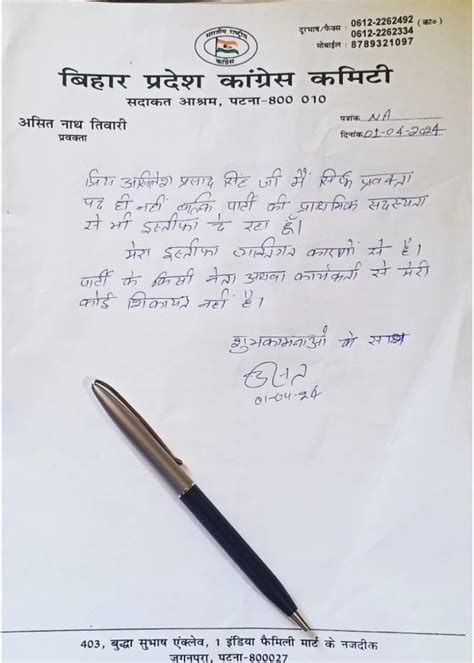 भारतीय राष्ट्रीय
कांग्रेस
दूरभाष/फैक्स : 0612-2262492 (का०)
0612-2262334
मोबाईल : 8789321097
बिहार प्रदेश कांग्रेस कमिटी
सदाकत आश्रम, पटना-800 010
असित नाथ तिवारी
प्रवक्ता
पत्रांक NA
दिनांक 01-04-2024
प्रिय अखिलेश प्रसाद सिंह जी मैं सिर्फ प्रवक्ता
पद ही नहीं बल्कि पार्टी की प्राथमिक सदस्यता
से भी इस्तीफा दे रहा हूँ।
मेरा इस्तीफा व्यक्तिगत कारणों से है।
पार्टी के किसी नेता अथवा कार्यकर्ता से मेरी
कोई शिकायत नहीं है।
शुभकामनाओं के साथ
असित
01-04-24
403, बुद्धा सुभाष एंक्लेव, 1 इंडिया फैमिली मार्ट के नजदीक
जगनपुरा, पटना-800027